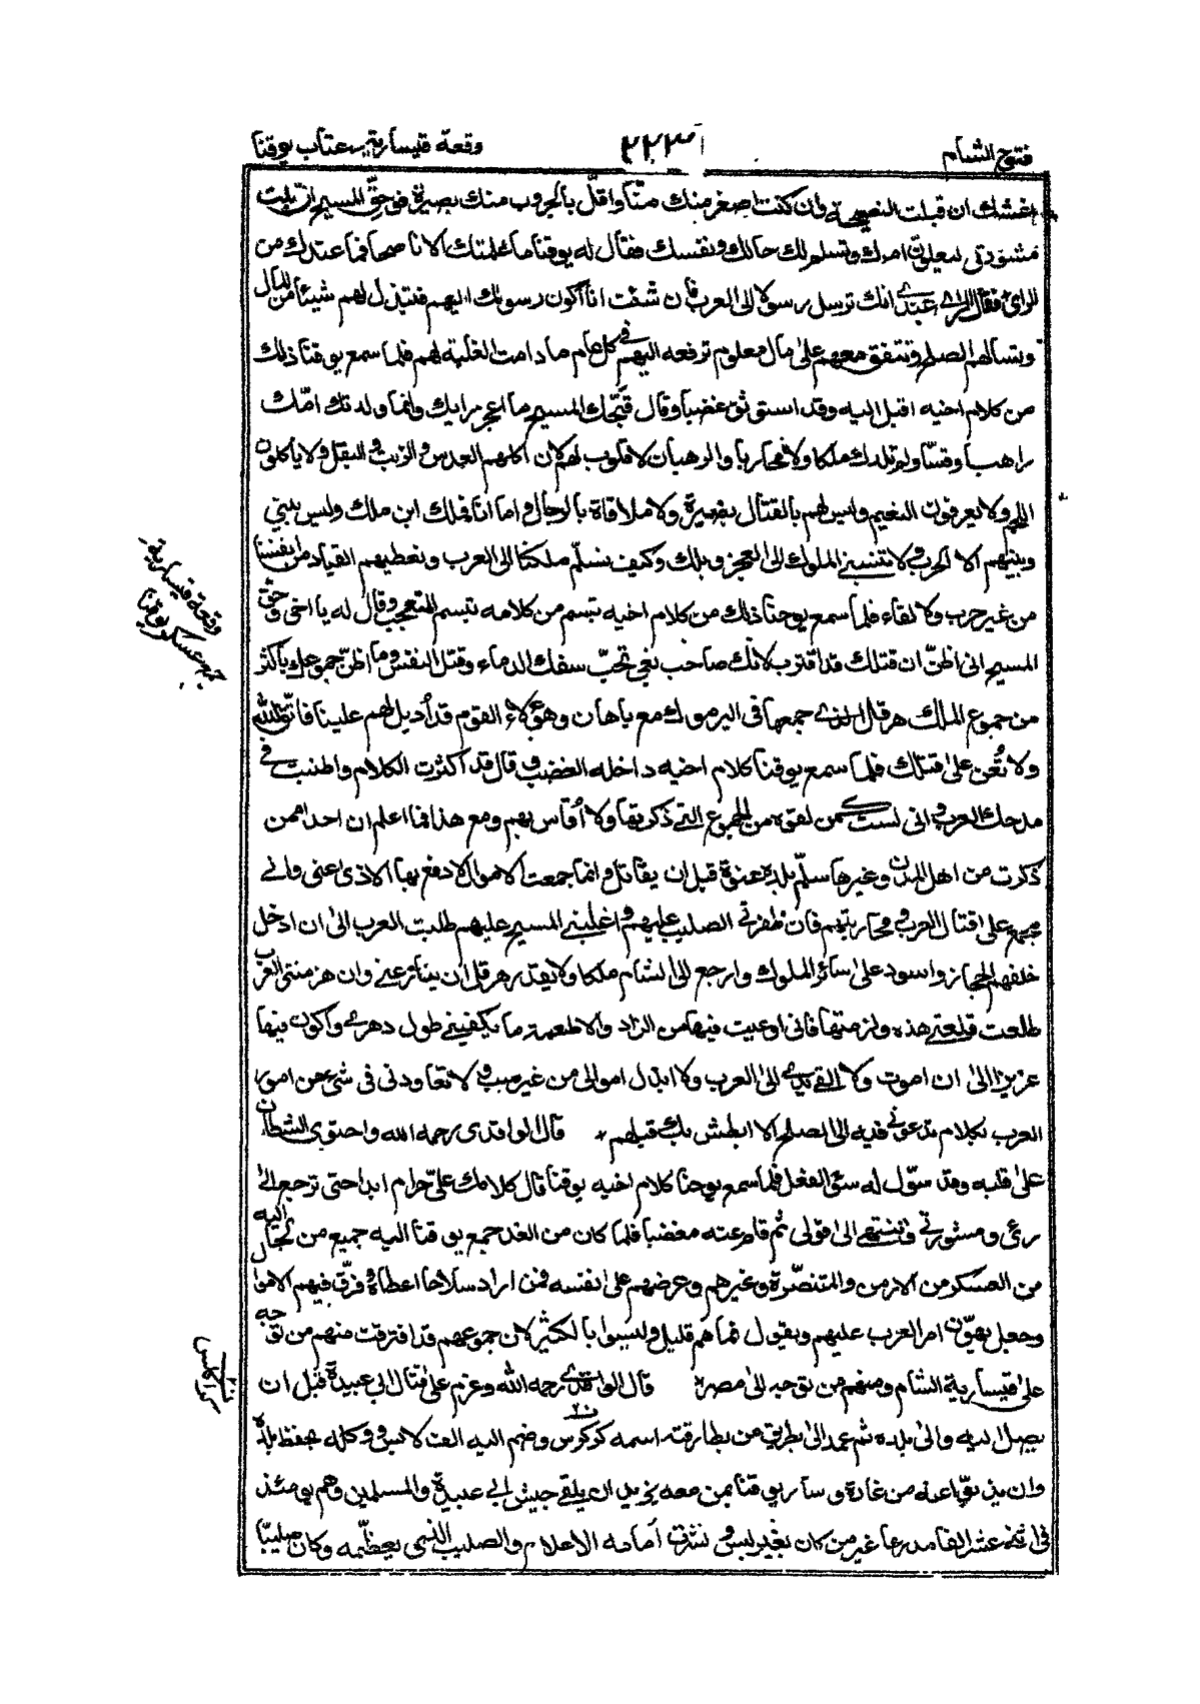 فتوح الشام
٢٢٣
وقعة قيسارية عتاب يوقنا
اغشك ان قبلت النصيحة وان كنت اصغر منك سنا واقل بالحروب منك بصيرة فوحق المسيح ان قبلت
مشورتي ليعلون امرك وتسلم لك حالك ونفسك فقال له يوقنا ما علمتك الا ناصحا فما عندك من
الراي فقال الراي عندي انك ترسل رسولا الى العرب فان شئت انا اكون رسولك اليهم فتبذل لهم شيئا من المال
وتسالهم الصلح وتتفق معهم على مال معلوم ترفعه اليهم في كل عام ما دامت الغلبة لهم فلما سمع يوقنا ذلك
من كلام اخيه اقبل اليه وقد استوثق غضبا وقال قبّحك المسيح ما اعجز رايك وانما ولدتك امّك
راهبا وقسّا ولم تلدك ملكا ولا محاربا والرهبان لا قلوب لهم لان اكلهم العدس والزيت والبقل ولا ياكلون
اللحم ولا يعرفون النعيم وليس لهم بالقتال بصيرة ولا ملاقاة بالرجال واما انا فملك ابن ملك وليس بيني
وبينهم الا الحرب ولا تنسبني الملوك الى العجز ويلك وكيف نسلّم ملكنا الى العرب ونعطيهم القياد من انفسنا
من غير حرب ولا لقاء فلما سمع يوحنا ذلك من كلام اخيه تبسم من كلامه تبسم المتعجب وقال له يا اخي وحق
المسيح اني اظنّ ان قتلك قد اقترب لانك صاحب بغي تحبّ سفك الدماء وقتل النفس وما اظنّ جموعك باكثر
من جموع الملك هرقل الذي جمعها في اليرموك مع باهان وهؤلاء القوم قد أديل لهم علينا فاتق الله
ولا تُعن على قتلك فلما سمع يوقنا كلام اخيه داخله الغضب وقال قد اكثرت الكلام واطنبت في
مدحك العرب واني لست كمن لقوه من الجموع التي ذكرتها ولا أقاس بهم ومع هذا فما اعلم ان احدا ممن
ذكرت من اهل المدن وغيرها سلّم بلده عنوة قبل ان يقاتل وانما جمعت الاموال لادفع بها الاذى عني واني
على اقتال العرب ومحاربتهم فان ظفرني الصليب عليهم واغلبني المسيح عليهم طلبت العرب الى ان ادخل
خلفهم الحجاز واسود على سائر الملوك وارجع الى الشام ملكا ولا يقدر هرقل ان ينازعني وان هزمتني العرب
طلعت قلعتي هذه ولزمتها فاني اوعيت فيها من الزاد والاطعمة ما يكفيني طول دهري واكون فيها
عزيزا الى ان اموت ولا القي بيدي الى العرب ولا ابذل اموالي من غير سبب ولا تعاودني في شيء من امور
العرب بكلام تدعوني فيه الى الصلح الا ابطش بك قبلهم * قال الواقدي رحمه الله واحتوى الشيطان
على قلبه وقد سوّل له سوء الفعل فلما سمع يوحنا كلام اخيه يوقنا قال كلامك عليّ حرام ابدا حتى ترجع الى
رءي ومشورتي وتنتهي الى قولي ثم قام عنه مغضبا فلما كان من الغد جمع يوقنا اليه جميع من لجأ اليه
من العسكر من الارمن والمتنصّرة وغيرهم وعرضهم على نفسه فمن اراد سلاحا اعطاه وفرّق فيهم الاموال
وجعل يهوّن امر العرب عليهم ويقول فما هم قليل وليسوا بالكثير لان جموعهم قد افترقت منهم من توجه
على قيسارية الشام ومنهم من توجه الى مصر * قال الواقدي رحمه الله وعزم على قتال ابي عبيدة قبل ان
يصل اليه والى بلده ثم عمد الى بطريق من بطارقته اسمه كوكرس وضم اليه الف لابس ووكله بحفظ بلده
وان يذبّ اعنه من غارة وسار يوقنا بمن معه يريد ان يلقى جيش ابي عبيدة والمسلمين وهم يومئذ
في اثني عشر الفا مدرعا غير من كان بغير لبس ونشرت أمامه الاعلام والصليب الذي يعظّمه وكان صليبا
وقعة قيسارية
جمع عسكر يوقنا
ن كراكس